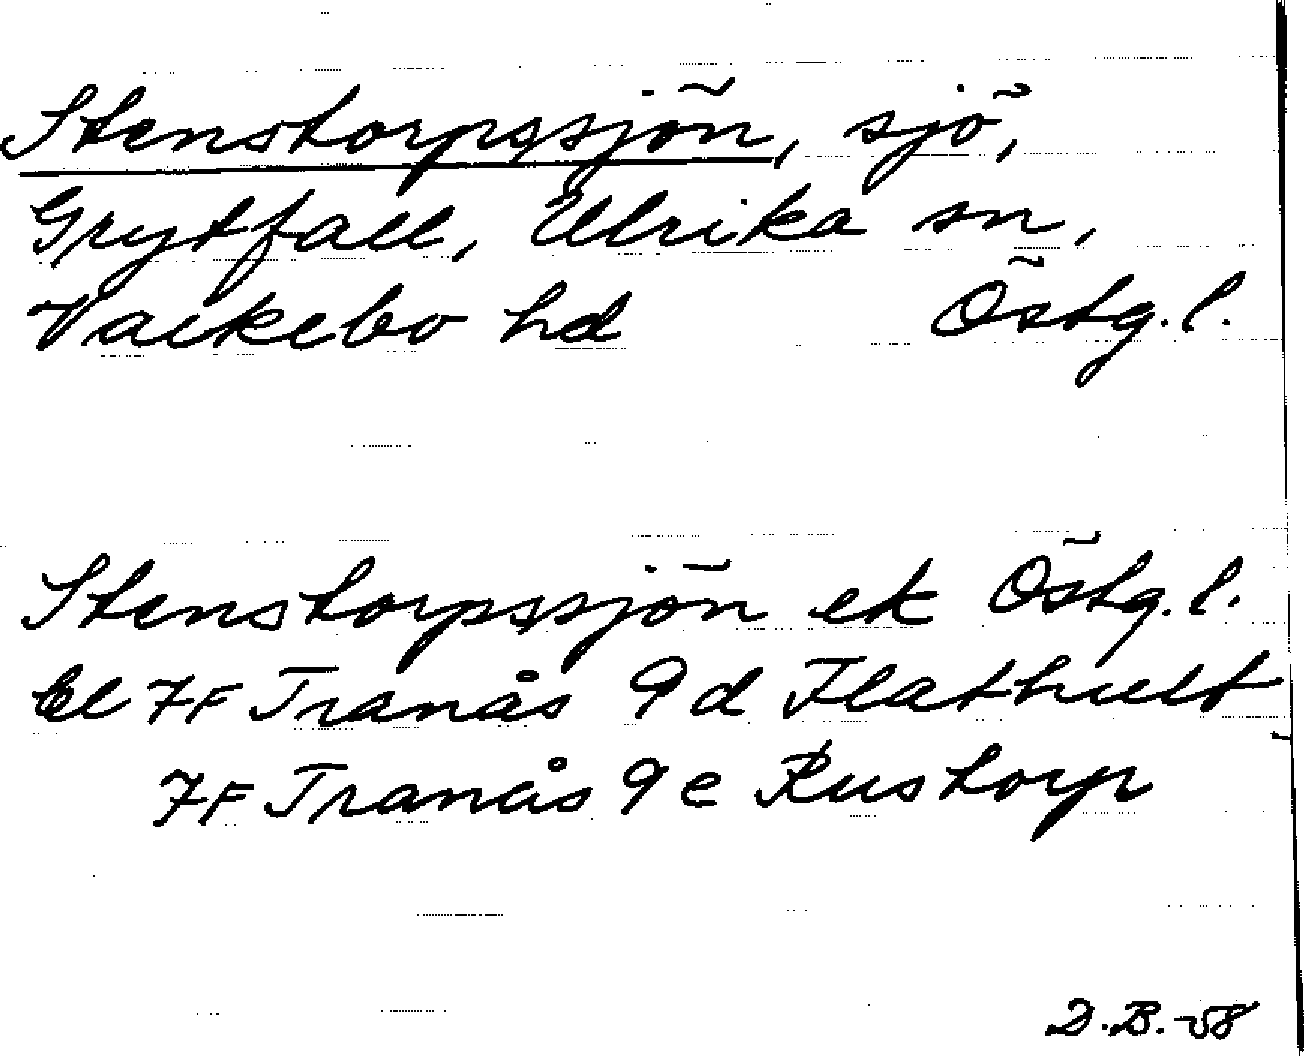 Stenstorpssjön, sjö,
Grytfall, Ulrika sn,
Valkebo hd Östg. l.
Stenstorpssjön ek Östg. l.
bl 7F Tranås 9 d Flathult
7F Tranås 9 e Rustorp
D.B.-58